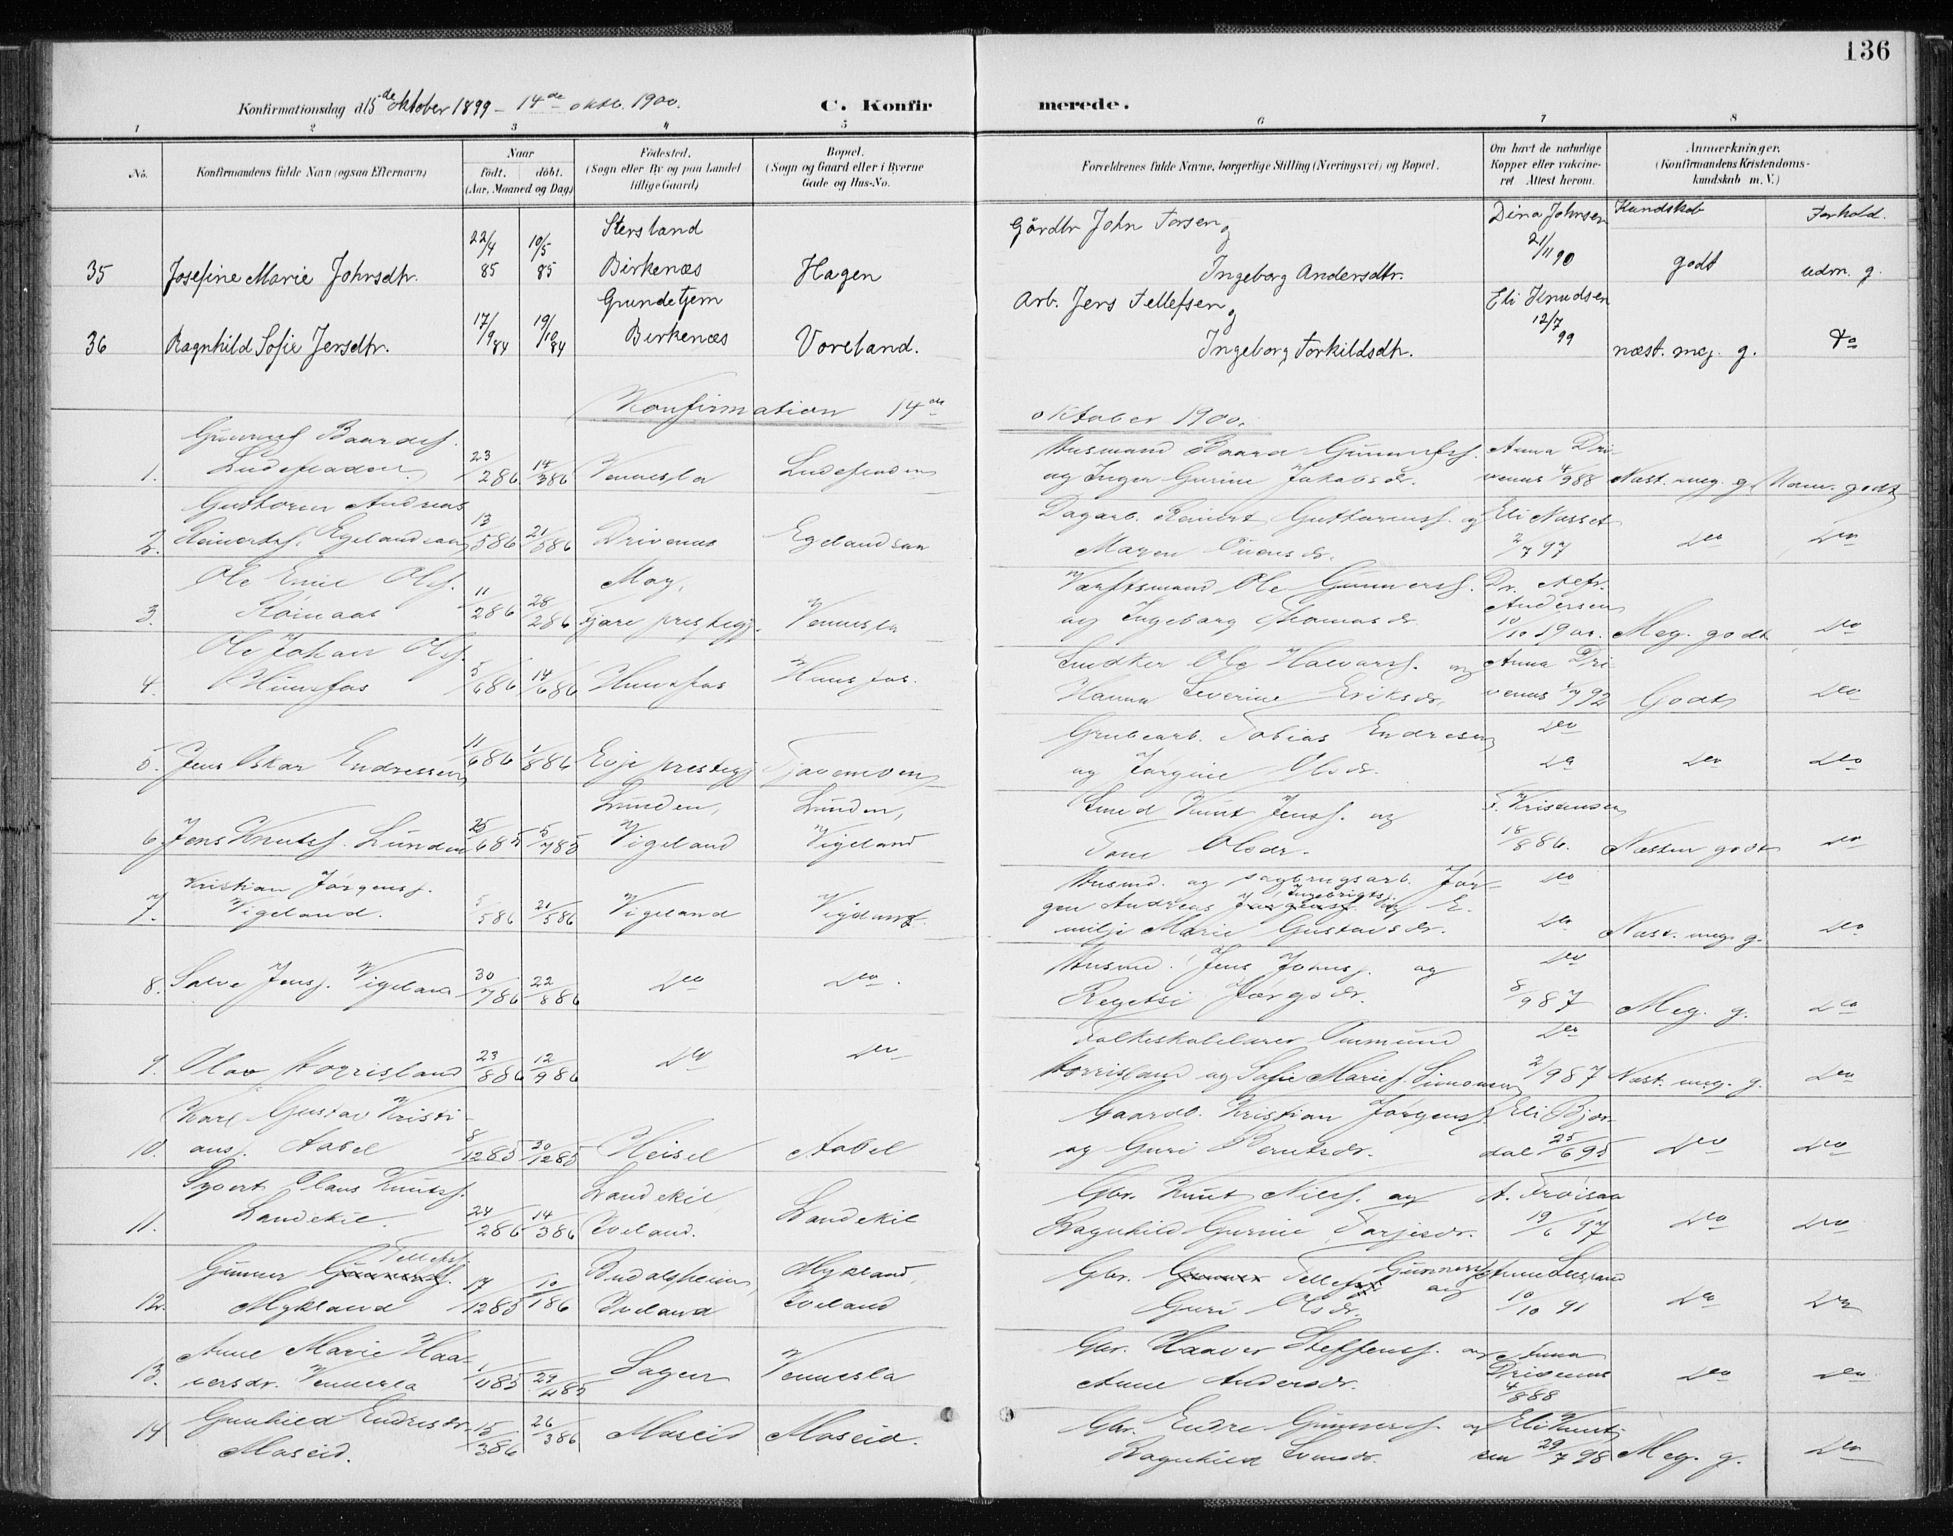 136
Konfirmationsdag d. 15de oktober 1899 - 14de oktb. 1900.
C. Konfirmerede.
1 2 3 4 5 6 7 8
No.
Konfirmandens fulde Navn (ogsaa Efternavn)
Naar
födt. döbt.
(Aar, Maaned og Dag)
Födested.
(Sogn eller By og paa Landet
tillige Gaard)
Bopæl.
(Sogn og Gaard eller i Byerne
Gade og Hus-No.
Forældrenes fulde Navne, borgerlige Stilling (Næringsvei) og Bopæl.
Om havt de naturlige
Kopper eller vakcine-
ret Attest herom.
Anmerkninger.
(Konfirmandens Kristendoms-
kundskab m. V.)
Kundskab Forhold.
35 Josefine Marie Johnsdtr. 22/4 85 10/5 85 Stersland
Birkenæs Hagen
Gårdbr John Torsen og
Ingeborg Andersdtr.
Dina Johnsen
21/11 90 godt udm. g.
36 Ragnhild Sofie Jensdtr. 17/9 84 19/10 84 Grundetjern
Birkenæs Voreland.
Arb. Jens Tellefsen og
Ingeborg Torkildsdtr.
Eli Knudsen
12/7 99 næst. meg. g. do
Konfirmation 14de oktober 1900.
1. Gunnuf Baardsf.
23/2 86 14/3 86 Vennesla
Husmand Baard Gunnufs.
og Inger Gurine Jakobsdr.
Anna Dri-
venes 4/9 88 Næst. meg. g.
2. Guthorm Andreas
Reinertsf. Egelandsaa 13/5 86 21/5 86 Drivenes Egelandsaa
Dagarb. Reinert Guthormsf. og
Maren
Eli Nasset
2/7 97 Do Do
3. Ole Emil Olsf.
11/2 86 28/2 86 Moy,
Fjære prestegj. Vennesla
Ole Gunnersf.
og Ingeborg Thomasdr.
Dr. Alfr.
Andersen
10/10 19ar. Meg. godt Do
4. Ole Johan Olsf.
Hunsfos 5/6 86 14/6 86 Hunsfos Hunsfos.
Snedker Ole Halvorsf. og
Hanna Severine Eriksdr.
Anna Dri-
venes 92 Godt Do
5. Jens Oskar Endressen 11/6 86 1/8 86 Evje prestegj
Grubearb. Tobias Endresen
og Jørgine Olsdr.
Do
Do Do Do
6. Jens Knutsf. Lunden 25/6 85 5/7 85 Lunden,
Vigeland Lunden,
Vigeland
Smed Knut Jensf. og
Tone Olsdr.
T. Kristensen
18/8 86. Næsten godt Do
7. Kristian Jørgensf.
Vigeland. 5/5 86 21/5 86 Vigeland Vigeland.
Husmd. og sagbrugsarb. Jør-
gen Andreas Ingebrigts. og E-
milje Marie Gustavsdr.
Do
Do Næst. meg. g. Do
8. Salve Jensf. Vigeland 30/7 86 22/8 86 Do Do.
Husmd. Jens Johnsf. og
Jørgsdr.
Do
8/9 87 Meg. g. Do
9. Olav Horrisland 23/8 86 12/9 86 Do Do
Folkeskolelærer Aamund
Horrisland og Sofie Marie f. Simonsen
Do
2/9 87 Næst. meg. g. Do
10. Karl Gustav Kristi-
ansf. Aabel 8/12 85 30/12 85 Heisel Aabel
Gaardb. Kristian Jørgensf.
og Guri Berntsdr.
Eli Bjor-
dal 25/6 95 Do Do
11. Syvert Olaus Knutsf.
Landekil. 24/2 86 14/3 86 Landekil,
Iveland. Landekil
Gbr. Knut Nilsf. og
Ragnhild Gurine Tarjesdr.
A. Frøisaa
19/6 97 Do Do
12. Gunner Tellefsf.
Mykland 17/12 85 10/1 86
Iveland Mykland,
Iveland
Gbr. Tellef Gunnersf. og
Guri Olsdr.
10/10 91 Do Do
13. Anne Marie Haa-
versdr. Vennesla 1/4 85 29/4 85 Vennesla
Gbr. Haaver Steffensf. og
Anne Andersdr.
Anna
Drivenes
4/8 88 Do Do
14 Gunhild Endresdr.
Moseid. 15/3 86 26/3 86 Moseid Moseid.
Gbr. Endre Gunnersf. og
Ragnhild
Eli Knut-
sen 29/7 98 Meg. g. Do